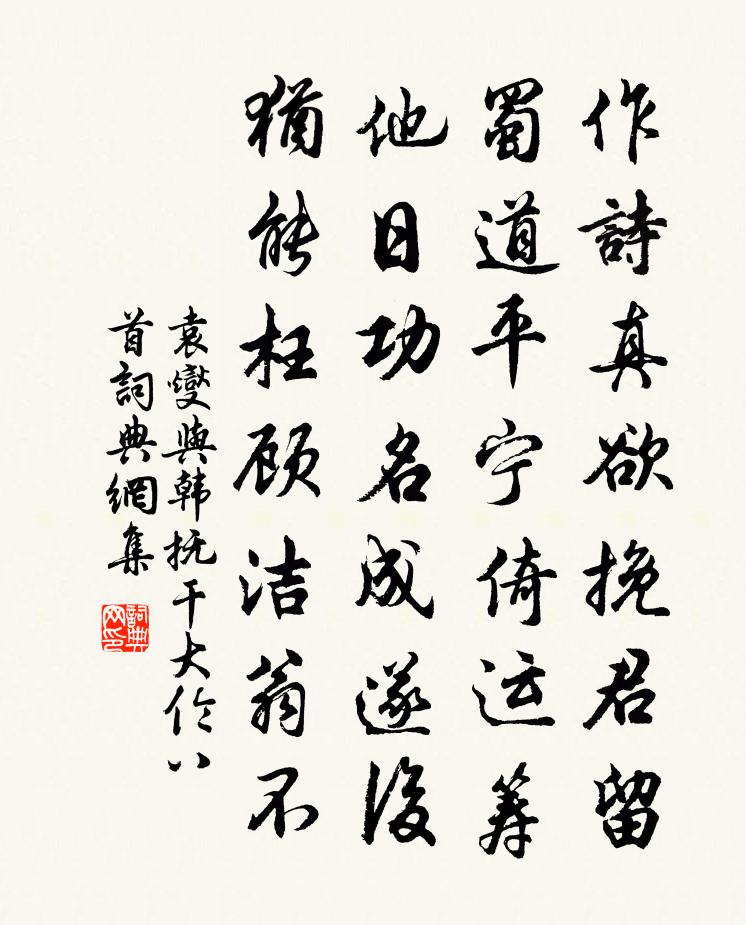 作詩真欲挽君留
蜀道平宁倚运筹
他日功名成遂後
猶能枉顾洁翁不
袁燮與韩抚干大伦八
首詞典網集
詞典
网印